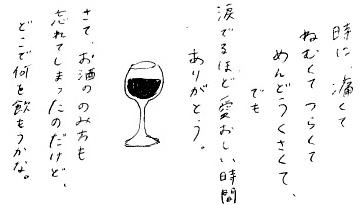 時に、痛くて
ねむくてつらくて
めんどうくさくて、
でも
涙でるほど愛おしい時間
ありがとう。
さて、お酒ののみ方も
忘れてしまったのだけど、
どこで何を飲もうかな。